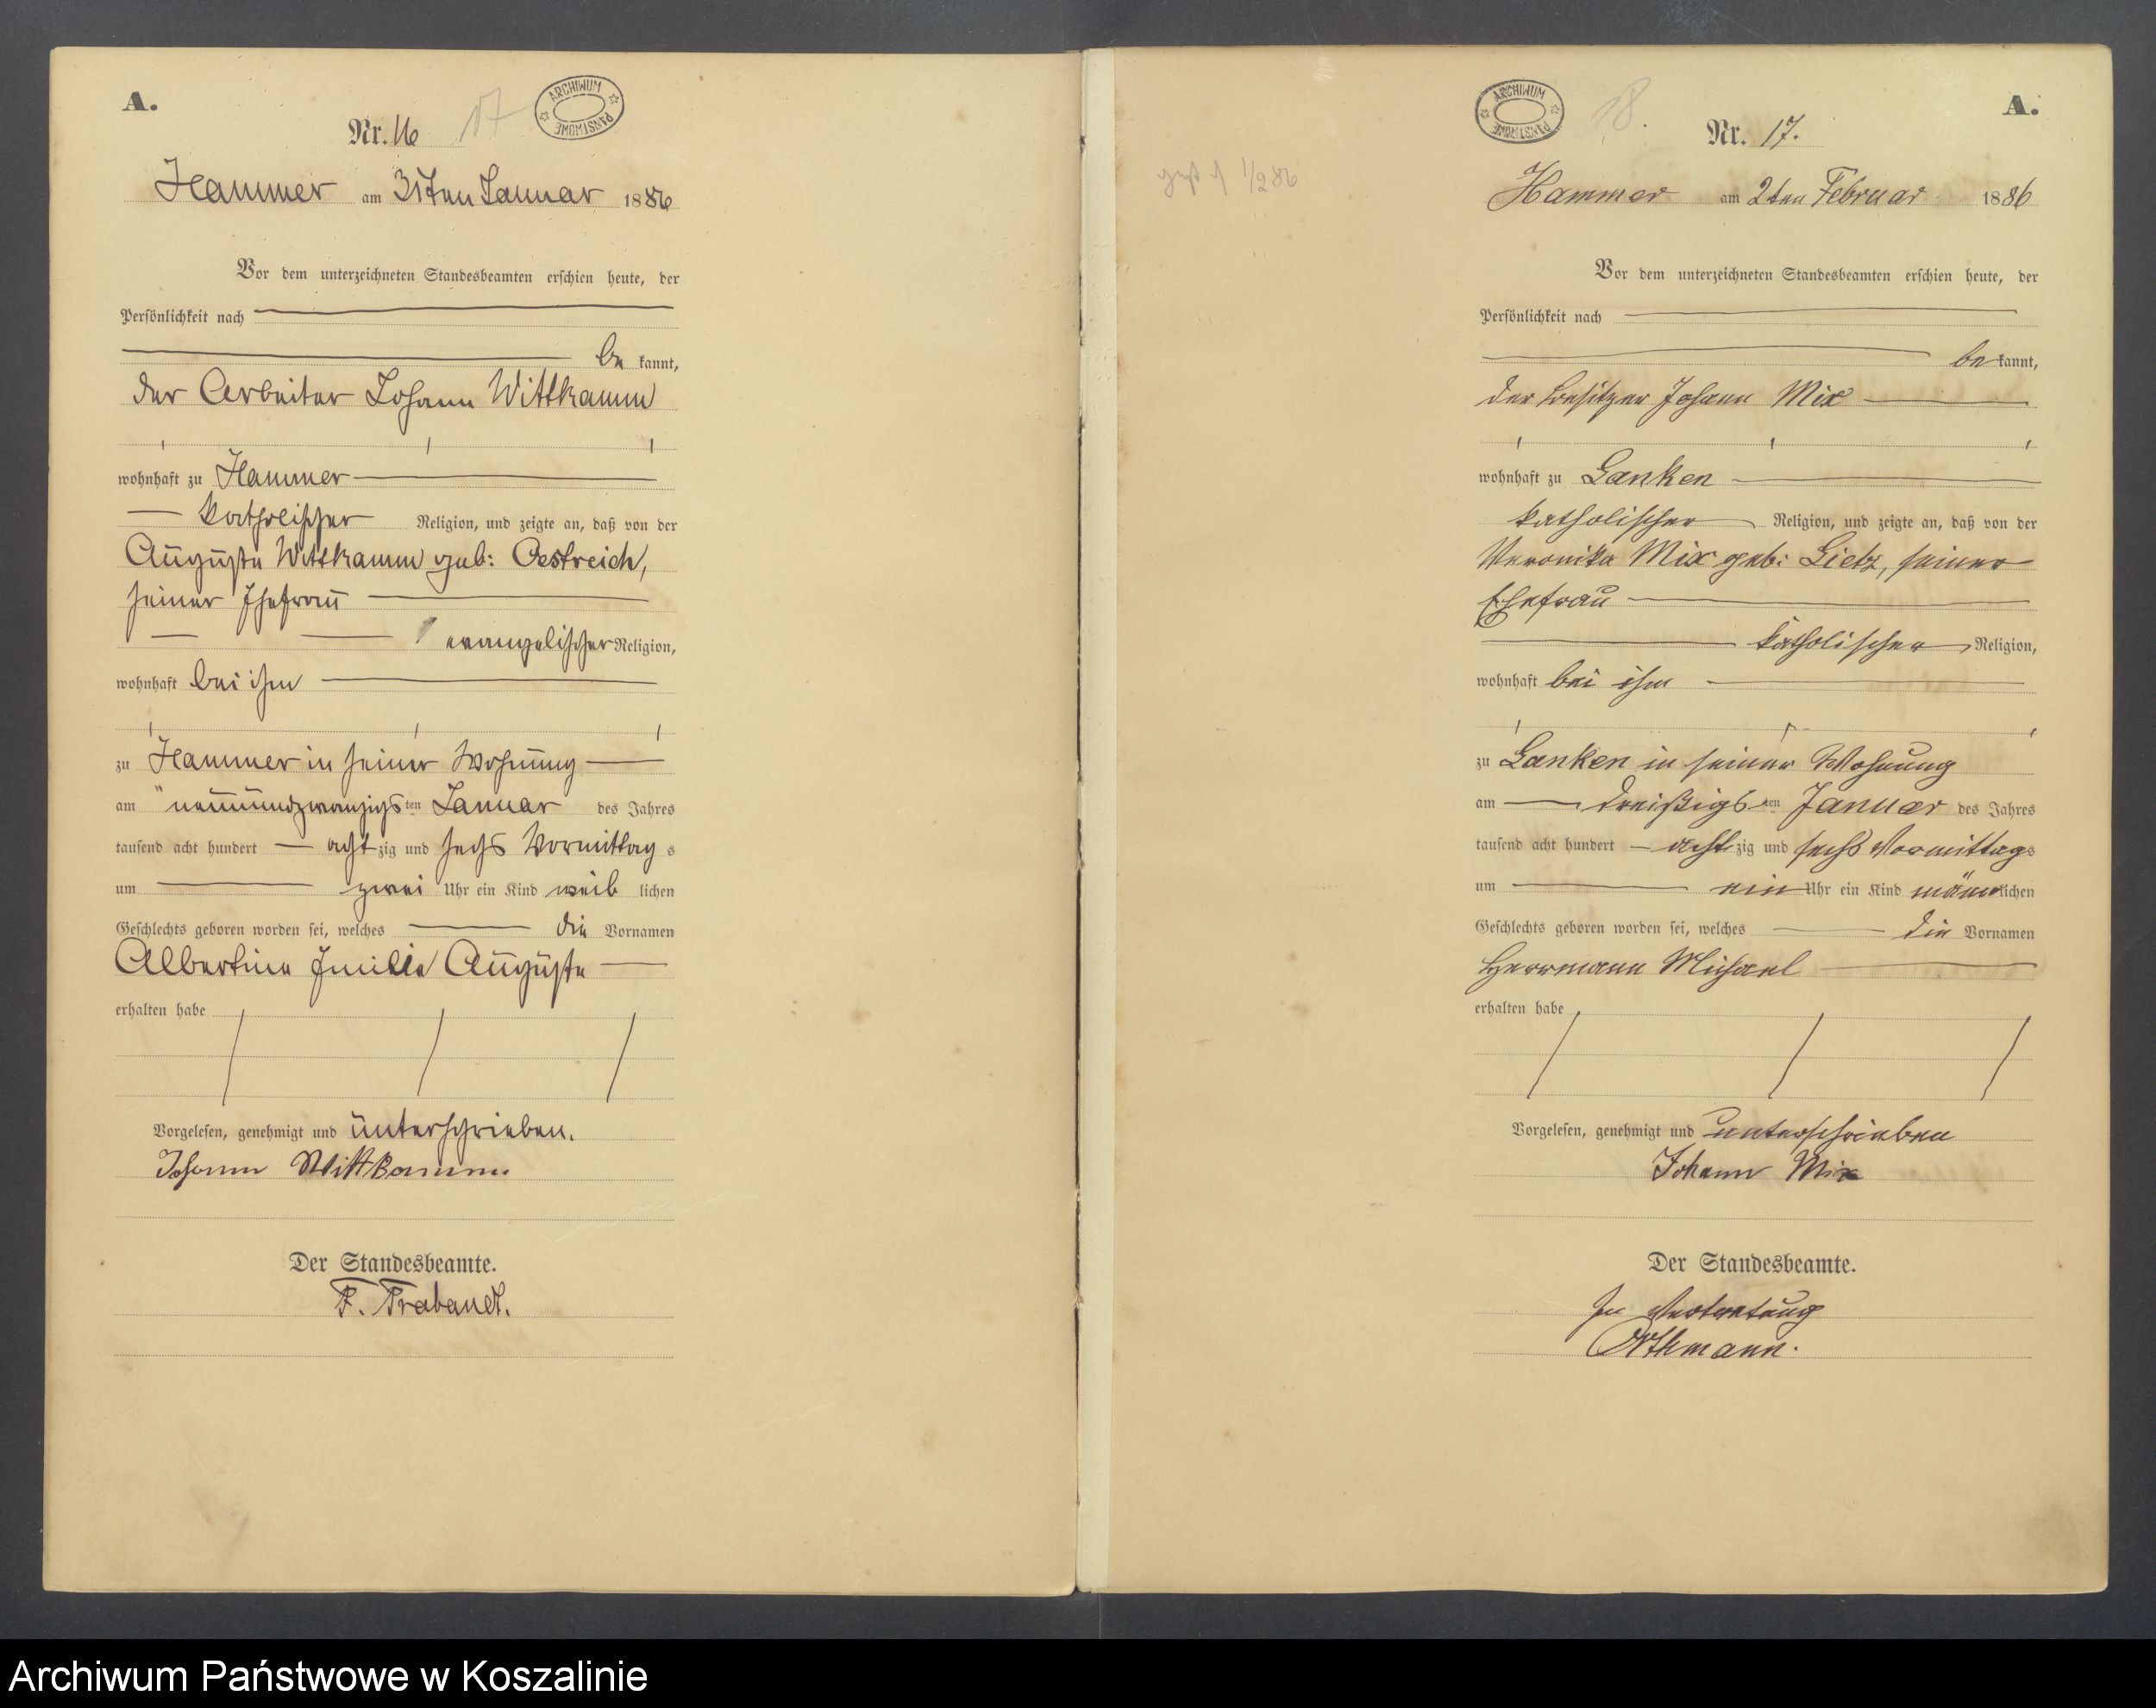 A.
Nr. 16
17
ARCHIWUM PAŃSTWOWE
Hammer am 31ten Januar 1886
Vor dem unterzeichneten Standesbeamten erschien heute, der
Persönlichkeit nach
be kannt,
der Arbeiter Johann Wittkamm
wohnhaft zu Hammer
katholischer Religion, und zeigte an, daß von der
Auguste Wittkamm geb: Oestreich,
seiner Ehefrau
evangelischer Religion,
wohnhaft bei ihm
zu Hammer in seiner Wohnung
am neunundzwanzigsten Januar des Jahres
tausend acht hundert achtzig und sechs Vormittags
um zwei Uhr ein Kind weiblichen
Geschlechts geboren worden sei, welches die Vornamen
Albertine Emilie Auguste
erhalten habe
Vorgelesen, genehmigt und unterschrieben.
Johann Wittkamm
Der Standesbeamte.
F. Trabandt.
ARCHIWUM PAŃSTWOWE
18.
A.
Nr. 17.
1/2 86
Hammer am 2ten Februar 1886
Vor dem unterzeichneten Standesbeamten erschien heute, der
Persönlichkeit nach
be kannt,
der Besitzer Johann Mix
wohnhaft zu Lanken
katholischer Religion, und zeigte an, daß von der
Veronika Mix geb: Lietz, seiner
Ehefrau
katholischer Religion,
wohnhaft bei ihm
zu Lanken in seiner Wohnung
am dreißigsten Januar des Jahres
tausend acht hundert achtzig und sechs Vormittags
um ein Uhr ein Kind männlichen
Geschlechts geboren worden sei, welches die Vornamen
Herrmann Michael
erhalten habe
Vorgelesen, genehmigt und unterschrieben
Johann Mix
Der Standesbeamte.
In Vertretung
Orthmann.
Archiwum Państwowe w Koszalinie